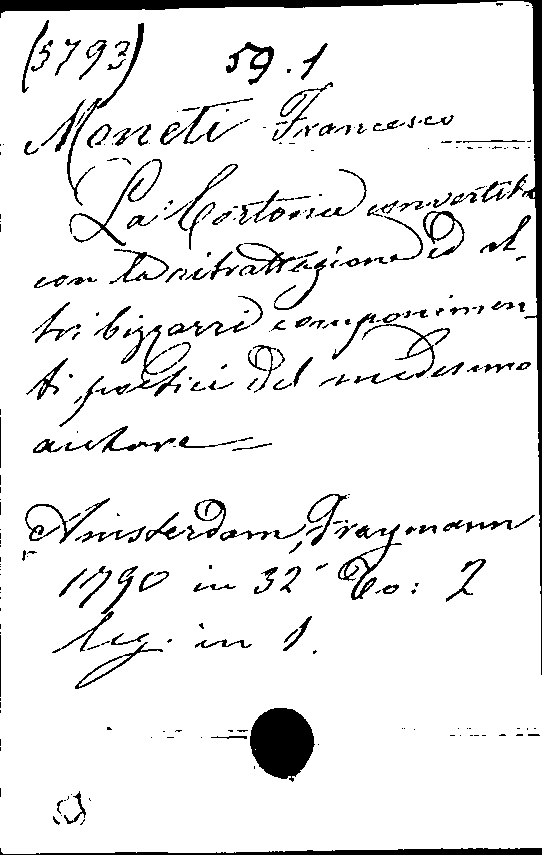 (5793) 59.1
Moneti Francesco
La Cortona convertita
con la ritrattazione ed al-
tri bizzarri componimen-
ti poetici del medesimo
autore
Amsterdam, Fraymann
1790 in 32° To: 2
leg. in 1.